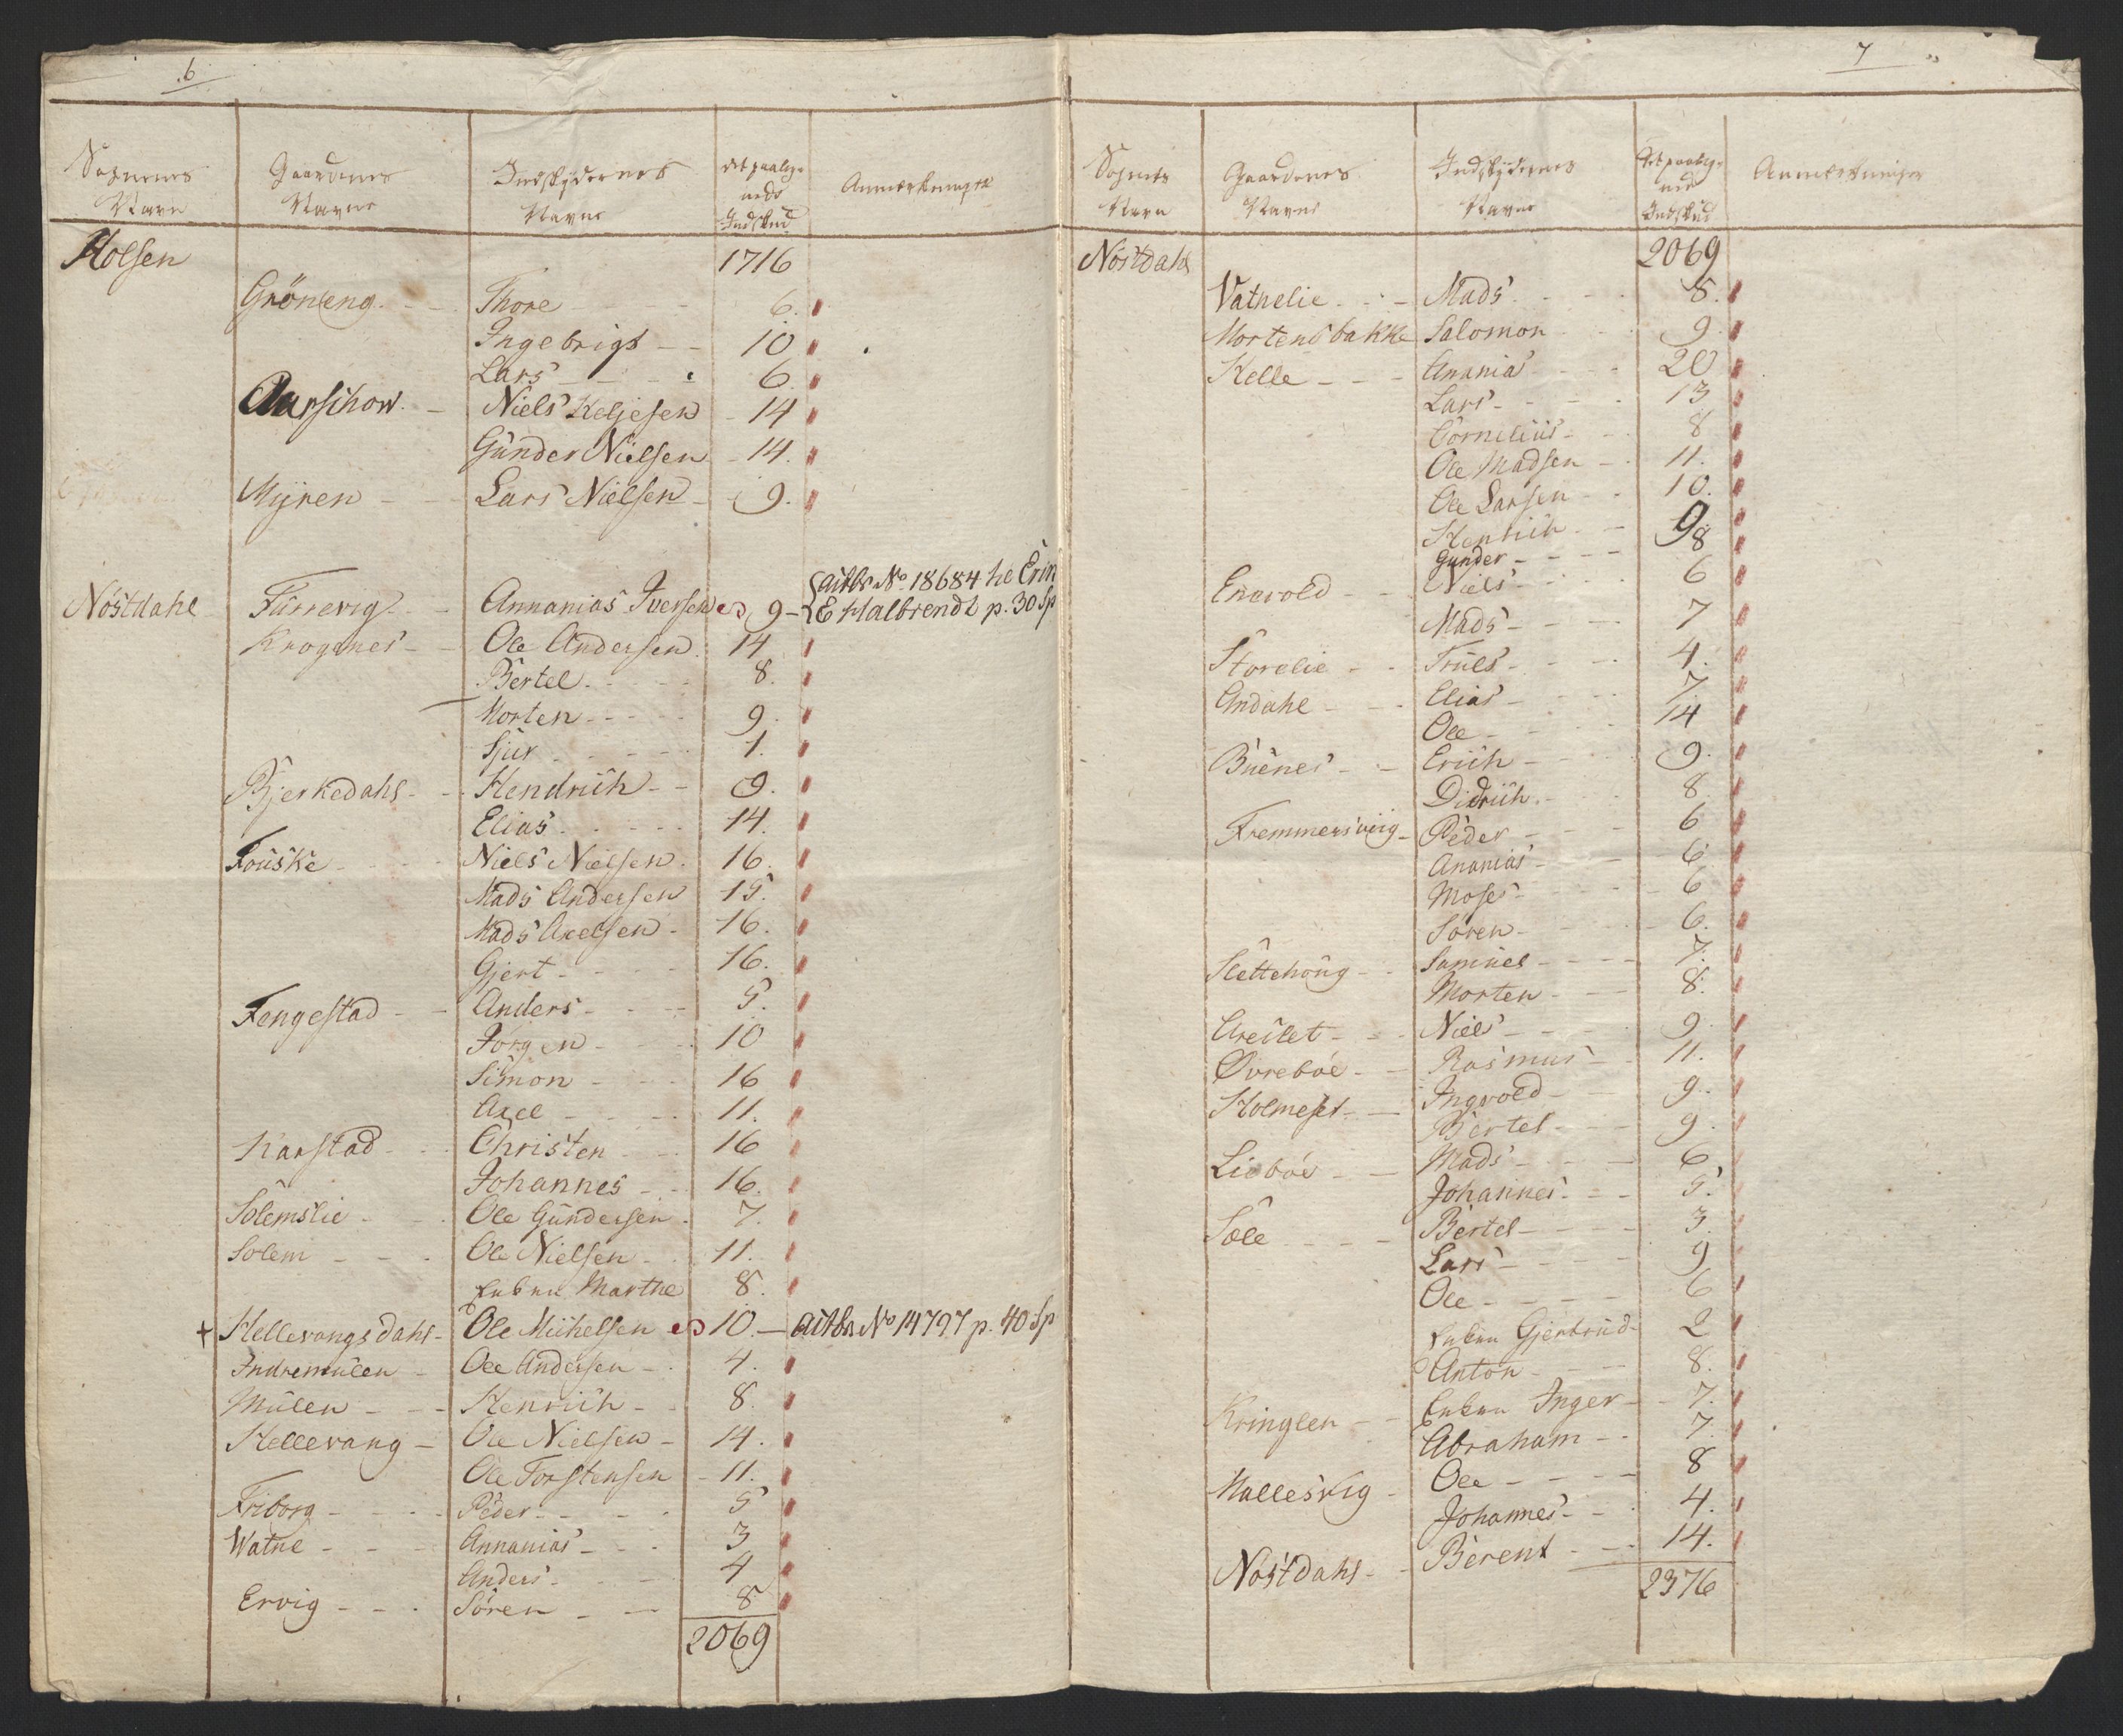 6
Sognenes Navn | Gaardenes Navne | Indskydernes Navne | det paalignede Indskud | Anmærkninger
Holsen 1716
Gröneng Thore 6.
Ingebrigt 10
Lars 6
Aarschow Niels Keljesen 14
Gunder Nielsen 14.
Myren Lars Nielsen 9.
No. 18684
Nöstdahl Furrevig Annanias Iversen 9 - E Halbrendt p. 30 Sp
Krognes Ole Andersen 14
Bertel 8.
Morten 9.
Sjur 1.
Bjerkedahl Hendrich 9.
Elias 14.
Fouske Niels Nielsen 16.
Mads Andersen 15.
Mads Axelsen 16.
Gjert 16.
Fengestad Anders 5.
Jörgen 10
Simon 16
Axel 11.
Narstad Christen 16
Johannes 16.
Solemslie Ole Gundersen 7.
Solem Ole Nielsen 11.
Enken Marthe 8.
+ Hellevangsdahl Ole Michelsen 10. - No 14797 p. 40 Sp
Indremulen Ole Andersen 4.
Mulen Henrich 8.
Hellevang Ole Nielsen 14.
Ole Torstensen 11.
Friborg Peder 5
Watne Annanias 3
Anders 4
Ervig Sören 8
2069
7
Sognets Navn | Gaardenes Navne | Indskydernes Navne | det paalignede Indskud | Anmærkninger
Nöstdahl 2069
Vatnelie Mads 8.
Mortensbakke Salomon 9.
Kelle Anania 20
Lars 13
Cornelius 8
Ole Madsen 11.
Ole Larsen 10.
Henrich 9
Gunder 8
Engvold Niels 6
Mads 7
Storelie Truls 4.
Andahl Elias 7.
Ole 14
Buenes Erich 9.
Didrich 8.
Fremmersvig Peder 6
Ananias 6.
Moses 6
Sören 6.
Slettehoug Samuel 7.
Morten 8.
Areklet Niels 9.
Øvreböe Rasmus 11.
Holmeset Ingvold 9.
Bertel 9.
Lieböe Mads 6
Johannes 5.
Sæle Bertel 3.
Lars 9
Ole 6
Enken Gjertrud 2
Anton 8.
Kringlen Enken Inger 7.
Abraham 7.
Mallesvig Ole 8
Johannes 4.
Nöstdahl Berent 14.
2376